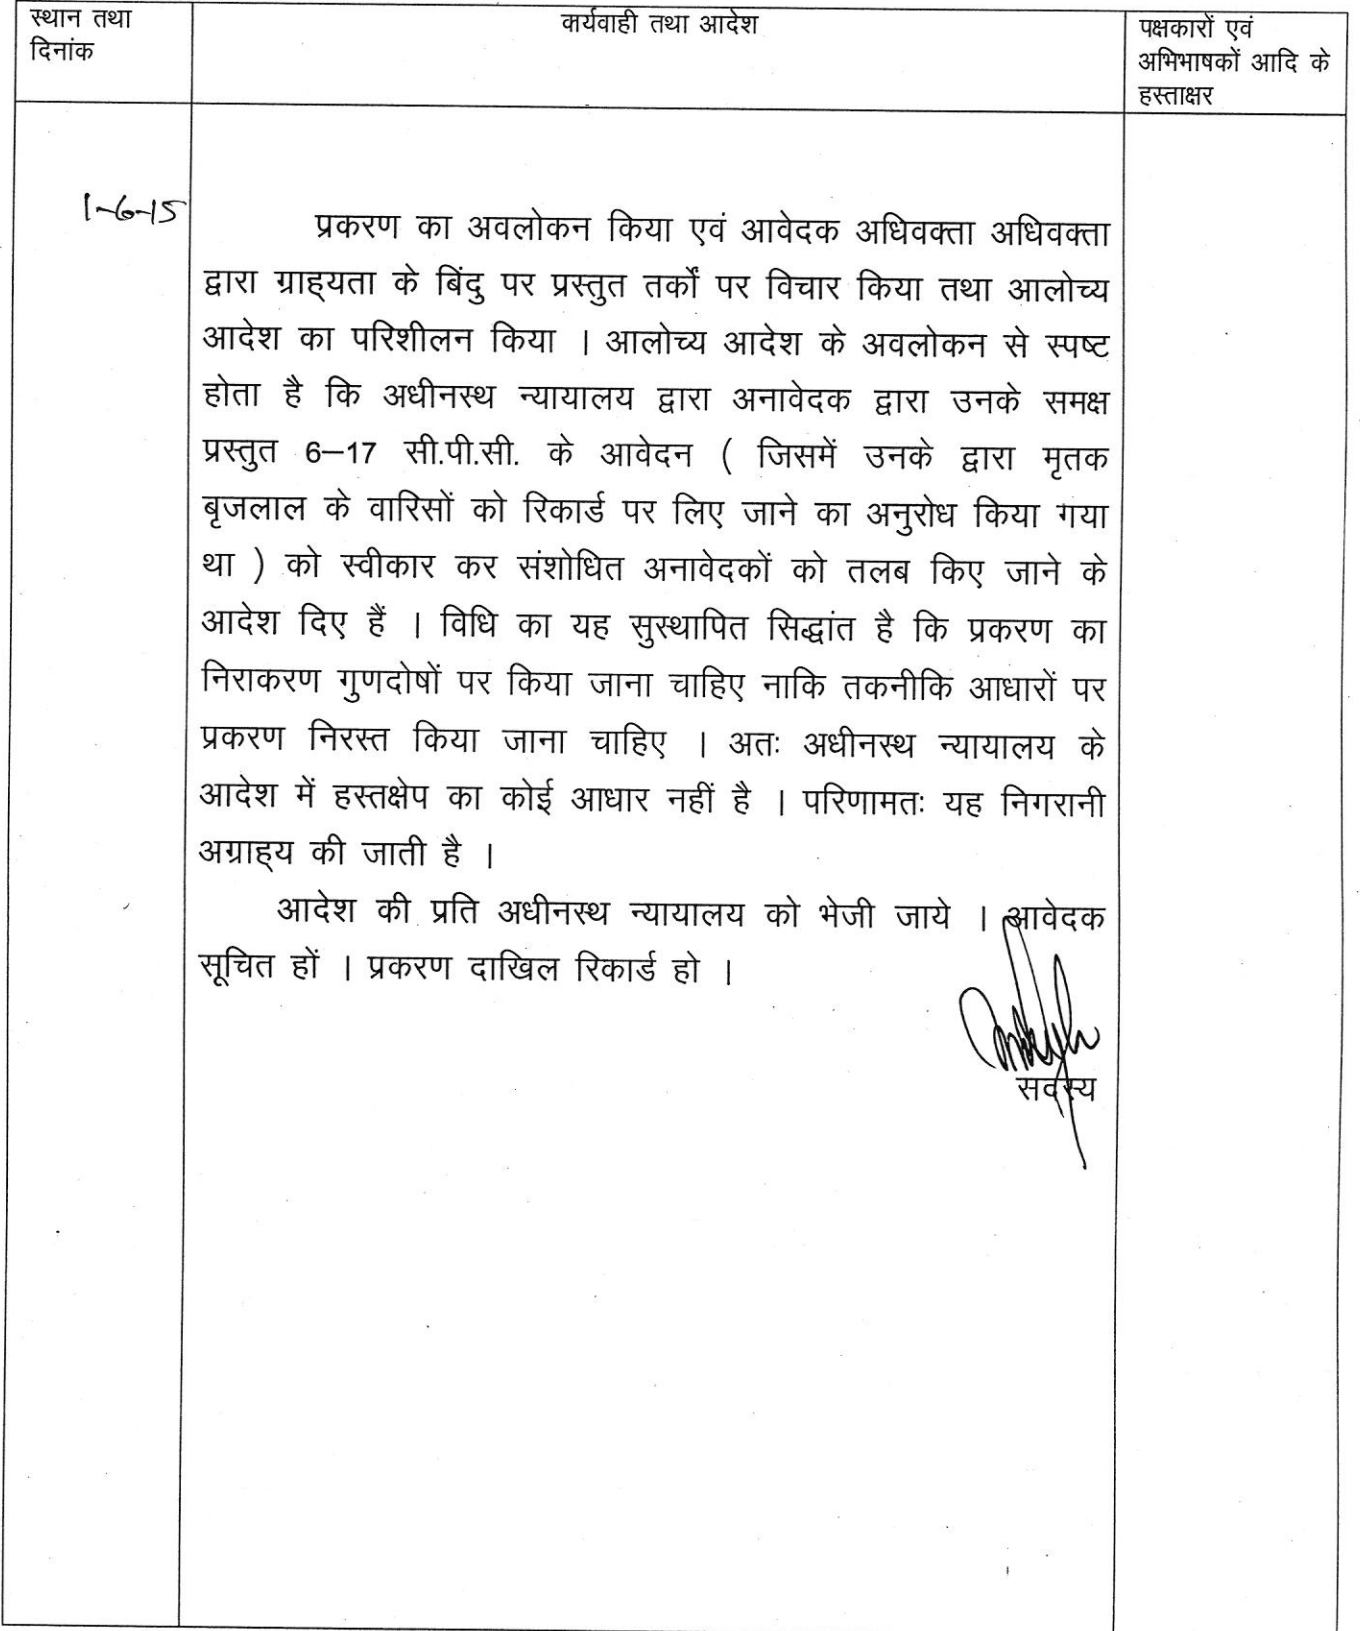 स्थान तथा
दिनांक
कार्यवाही तथा आदेश
पक्षकारों एवं
अभिभाषकों आदि के
हस्ताक्षर
1-6-15
प्रकरण का अवलोकन किया एवं आवेदक अधिवक्ता अधिवक्ता
द्वारा ग्राह्यता के बिंदु पर प्रस्तुत तर्कों पर विचार किया तथा आलोच्य
आदेश का परिशीलन किया । आलोच्य आदेश के अवलोकन से स्पष्ट
होता है कि अधीनस्थ न्यायालय द्वारा अनावेदक द्वारा उनके समक्ष
प्रस्तुत 6–17 सी.पी.सी. के आवेदन ( जिसमें उनके द्वारा मृतक
बृजलाल के वारिसों को रिकार्ड पर लिए जाने का अनुरोध किया गया
था ) को स्वीकार कर संशोधित अनावेदकों को तलब किए जाने के
आदेश दिए हैं । विधि का यह सुस्थापित सिद्धांत है कि प्रकरण का
निराकरण गुणदोषों पर किया जाना चाहिए नाकि तकनीकि आधारों पर
प्रकरण निरस्त किया जाना चाहिए । अतः अधीनस्थ न्यायालय के
आदेश में हस्तक्षेप का कोई आधार नहीं है । परिणामतः यह निगरानी
अग्राह्य की जाती है ।
आदेश की प्रति अधीनस्थ न्यायालय को भेजी जाये । आवेदक
सूचित हों । प्रकरण दाखिल रिकार्ड हो ।
सदस्य